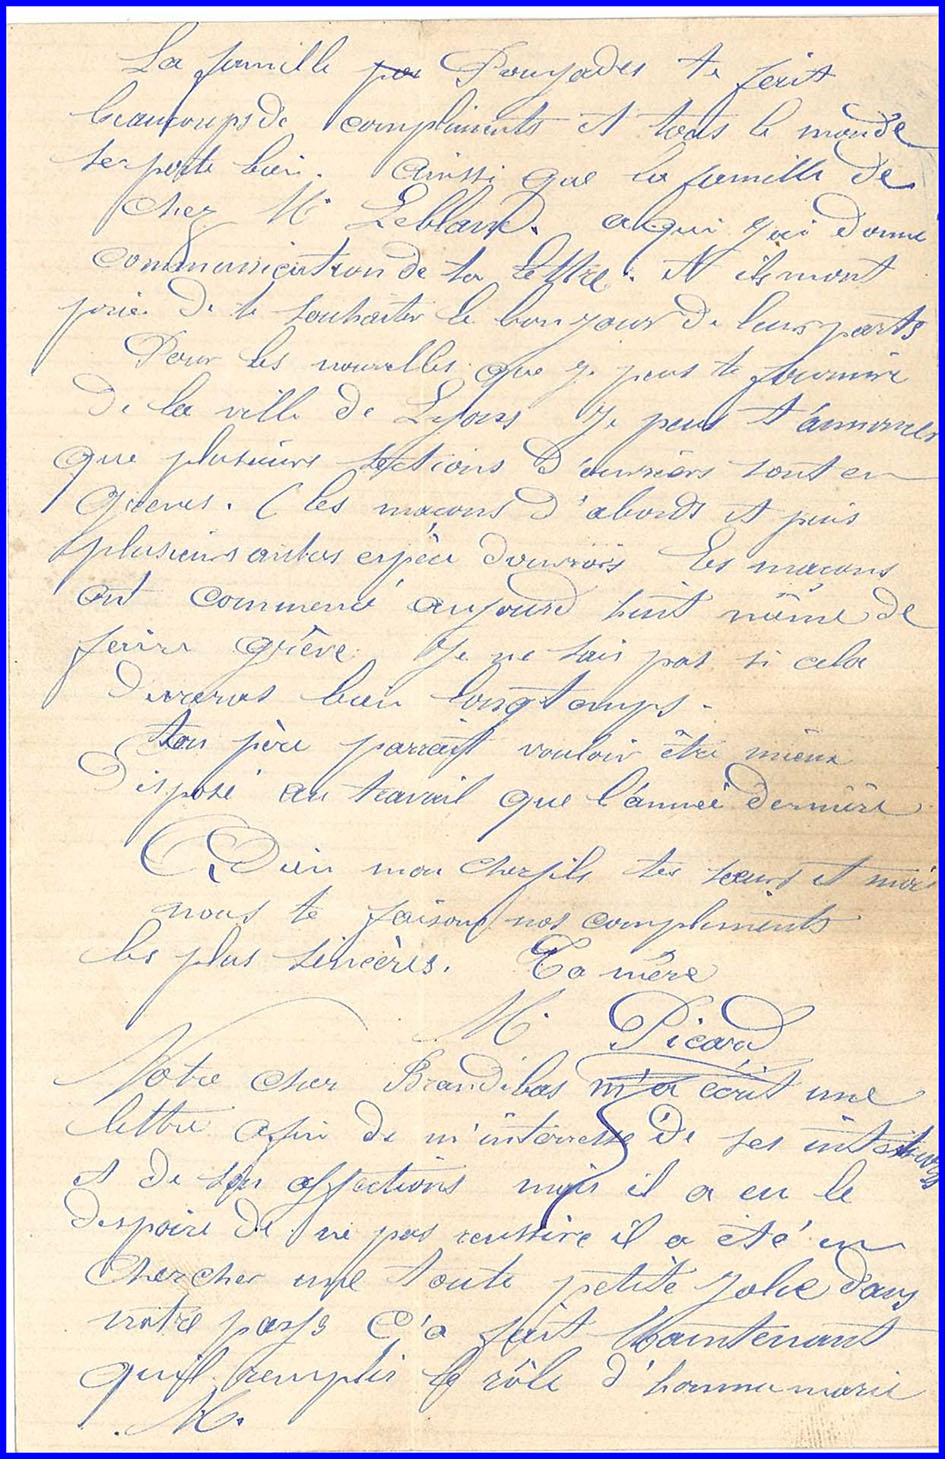 La famille Pouyades te fait
beaucoups de compliments et tous le monde
se porte bien. Ainssi que la famille de
chez Mr Leblanc. a qui j'ai donné
communication de ta lettre. Et ils mont
priée de te souhaiter le bonjour de leurs parts
Pour les nouvelles que je peus te fournire
de la ville de Lyons Je peus t'annoncer
que plusieurs sections d'ouvriers sont en
greves. (les macons d'abords et puis
plusieurs autres espèce d'ouvriers Les macons
ont commencé aujourd huit même de
faire grève. Je ne sais pas si cela
dureras bien longtemps.
ton père parrait vouloir être mieux
disposé au travail que l'année dernière
mon cher fils tes sœurs et moi
nous te faisons nos compliments
les plus sincères. Ta mère
M. Picard
Notre cher Brandibas m'a écrit une
lettre afin de m'interressé de ses
et de ses affections mais il a eu le
despoire de ne pas reussire il a été en
chercher une toute petite jolie dans
notre pays C'a fait Maintenant
qu'il remplis le rôle d'homme marié
M.